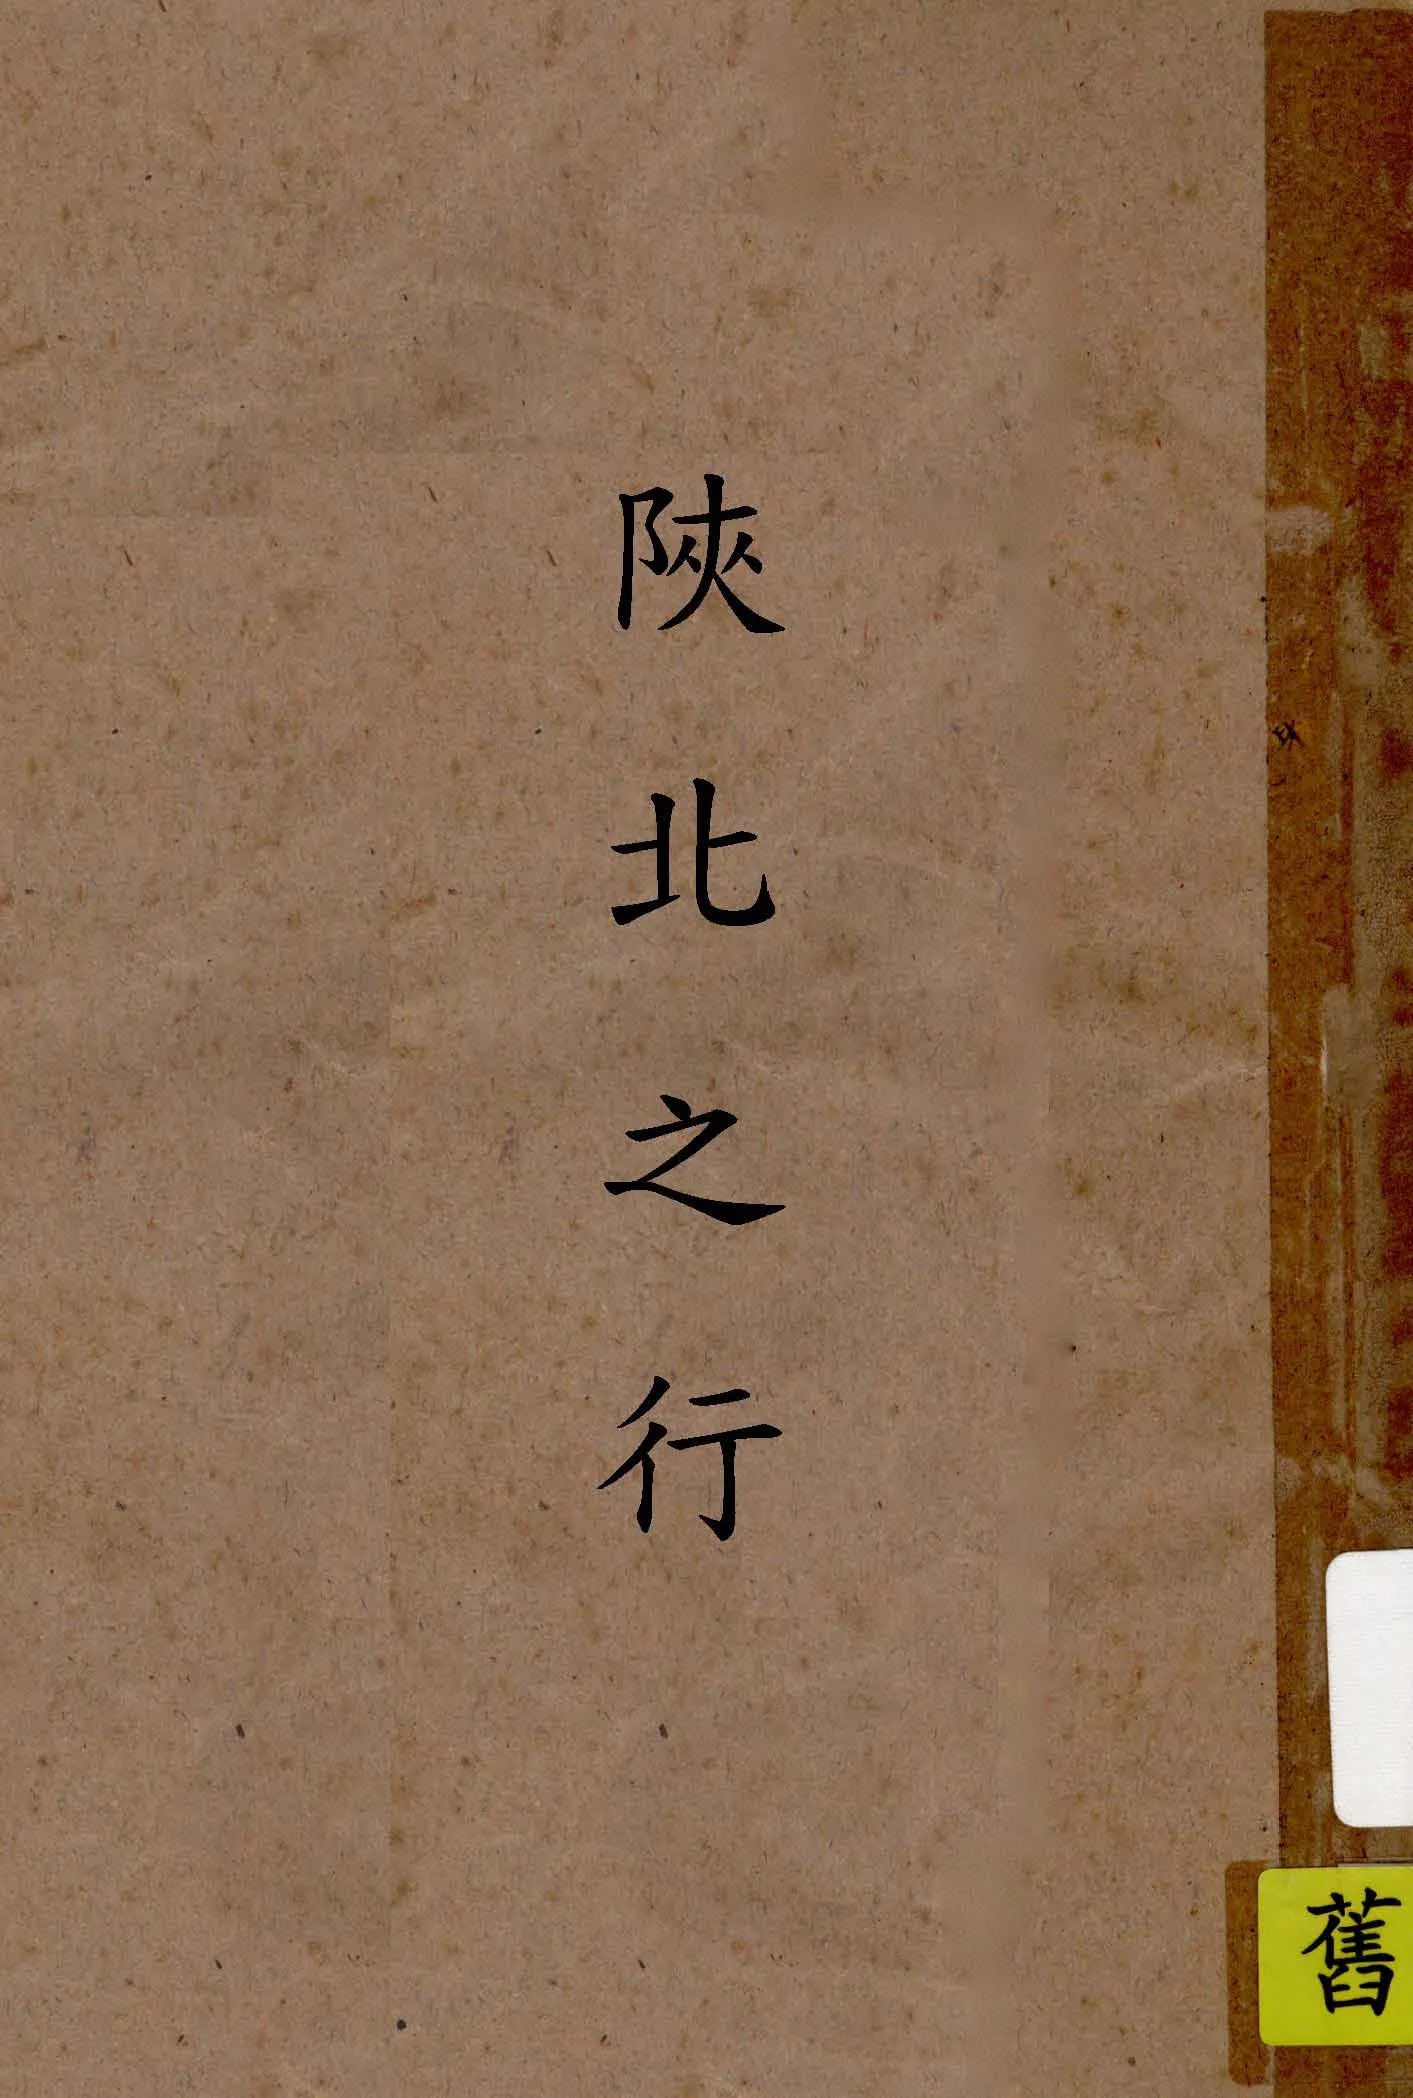 陝北之行
舊